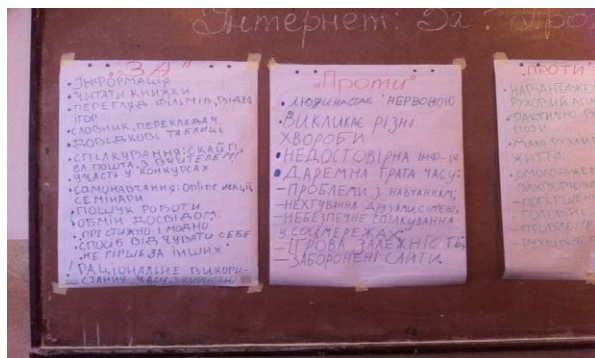 Інтернет: За?
„ЗА"
• ІНФОРМАЦІЯ
• ЧИТАТИ КНИЖКИ
• ПЕРЕГЛЯД ФІЛЬМІВ, ВІДЕО
ІГОР
• СЛОВНИК, ПЕРЕКЛАДАЧ,
ДОВІДКОВІ ТАБЛИЦІ
• СПІЛКУВАННЯ: СКАЙП,
ЕЛ. ПОШТА, З ВЧИТЕЛЕМ,
УЧАСТЬ У КОНКУРСАХ
• САМОНАВЧАННЯ: Online ЛЕКЦІЇ,
СЕМІНАРИ
• ПОШУК РОБОТИ
• ОБМІН ДОСВІДОМ
• ПРЕСТИЖНО І МОДНО
• СПОСІБ ВІДЧУВАТИ СЕБЕ
НЕ ГІРШЕ ЗА ІНШИХ
• РАЦІОНАЛЬНЕ ВИКОРИ-
СТАННЯ ЧАСУ
„Проти"
• ЛЮДИНА СТАЄ НЕРВОВОЮ
• ВИКЛИКАЄ РІЗНІ
ХВОРОБИ
• НЕДОСТОВІРНА ІНФ-ІЯ
• ДАРЕМНА ТРАТА ЧАСУ:
– ПРОБЛЕМИ З НАВЧАННЯМ,
– НЕХТУВАННЯ ДРУЗЯМИ, СІМ'ЄЮ,
– НЕБЕЗПЕЧНЕ СПІЛКУВАННЯ
У СОЦМЕРЕЖАХ
– ІГРОВА ЗАЛЕЖНІСТЬ,
– ЗАБОРОНЕНІ САЙТИ.
„ПРОТИ"
ЖИТТЯ